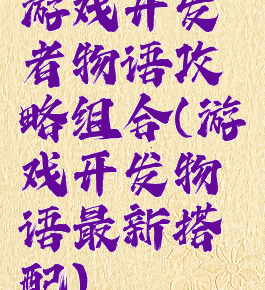 游戏开发
者物语攻
略组合(游
戏开发物
语最新搭
配)